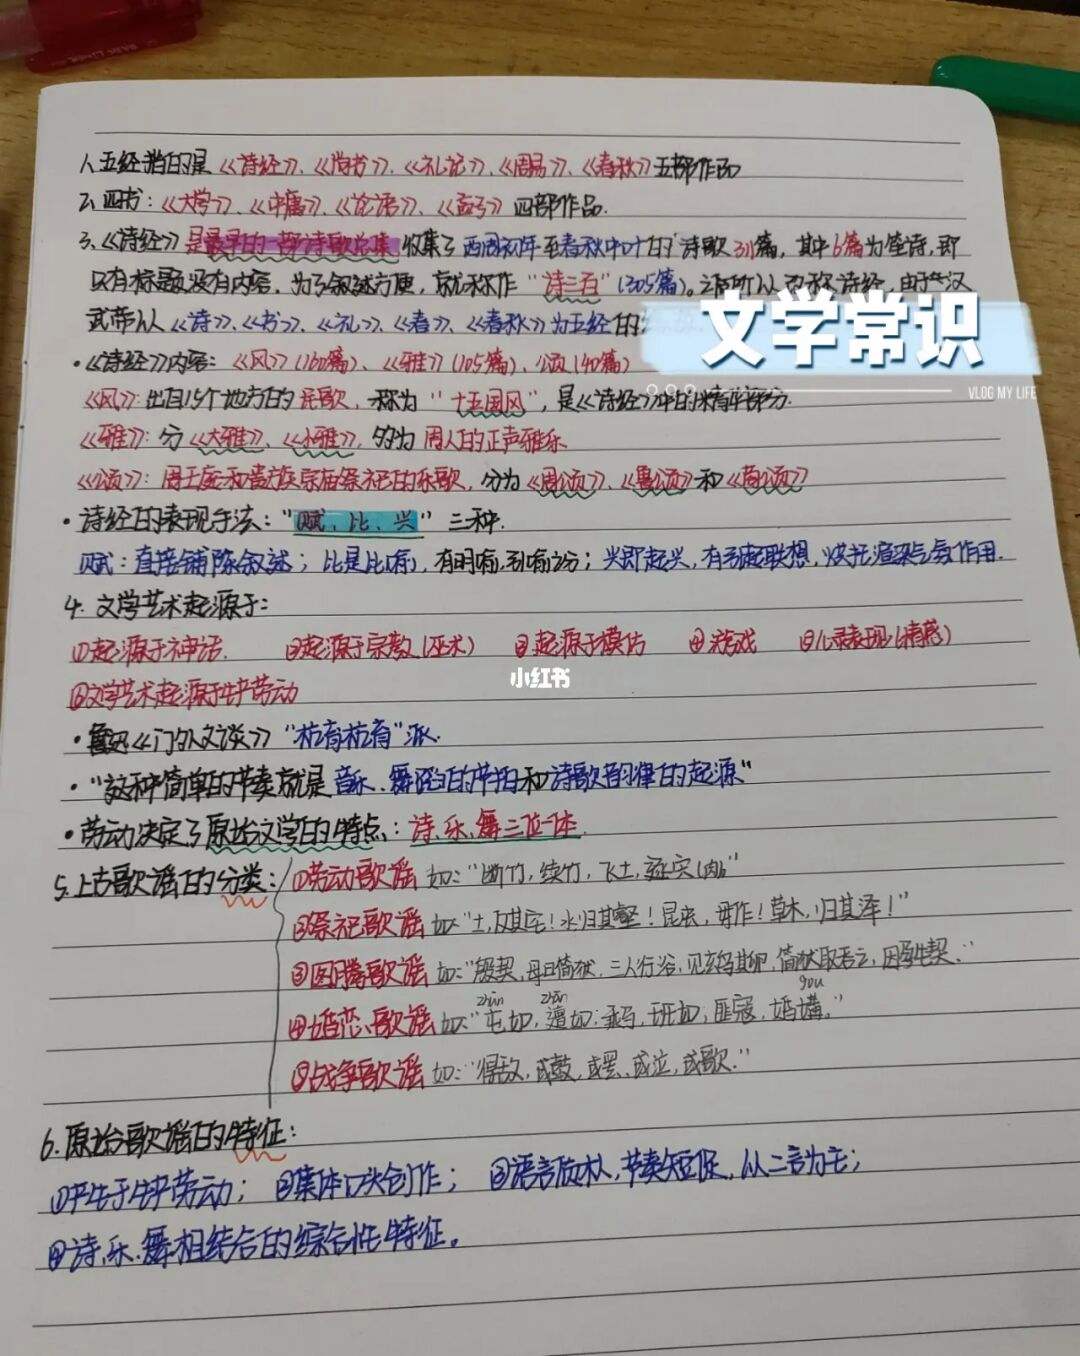 1、五经指的是《诗经》、《尚书》、《礼记》、《周易》、《春秋》五部作品
2、四书：《大学》、《中庸》、《论语》、《孟子》四部作品.
3、《诗经》是最早的一部诗歌总集 收集了西周初年至春秋中叶的诗歌311篇，其中6篇为笙诗，即
只有标题没有内容，为了叙述方便，就称作"诗三百"(305篇)。之所以又称诗经，由于汉
武帝从《诗》、《书》、《礼》、《春》、《春秋》为五经的
文学常识
VLOG MY LIFE
·《诗经》内容：《风》(160篇)、《雅》(105篇)、颂(40篇)
《风》：出自15个地方的民歌，称为"十五国风"，是《诗经》中的精华部分.
《雅》：分《大雅》、《小雅》，多为周人的正声雅乐
《颂》：周王庭和贵族宗庙祭祀的乐歌，分为《周颂》、《鲁颂》和《商颂》
·诗经的表现手法："赋、比、兴"三种.
赋：直接铺陈叙述；比是比喻，有明喻,引喻之分；兴即起兴，有引起联想，烘托渲染气氛作用.
4. 文学艺术起源于：
①起源于神话. ②起源于宗教(巫术) ③起源于模仿 ④游戏 ⑤心灵表现(情感)
⑥文学艺术起源于生产劳动
小红书
·鲁迅《门外文谈》"杭育杭育"派.
·"这种简单的节奏就是音乐、舞蹈的节拍和诗歌韵律的起源"
·劳动决定了原始文学的特点：诗、乐、舞三位一体.
5.上古歌谣的分类：①劳动歌谣 如："断竹，续竹，飞土，逐宍(肉)"
②祭祀歌谣 如："土，反其宅！水归其壑！昆虫，毋作！草木，归其泽！"
③图腾歌谣 如："殷契，母曰简狄，三人行浴，见玄鸟其卵，简狄取吞之，因孕生契."
zhūn zhān gòu
④婚恋歌谣 如："屯如，邅如；乘马，班如；匪寇，婚媾。"
⑤战争歌谣 如："得敌，或鼓，或罢、或泣，或歌."
6.原始歌谣的特征：
①产生于生产劳动；②集体口头创作；③语言质朴，节奏短促，以二言为主；
④诗、乐、舞相结合的综合性特征。